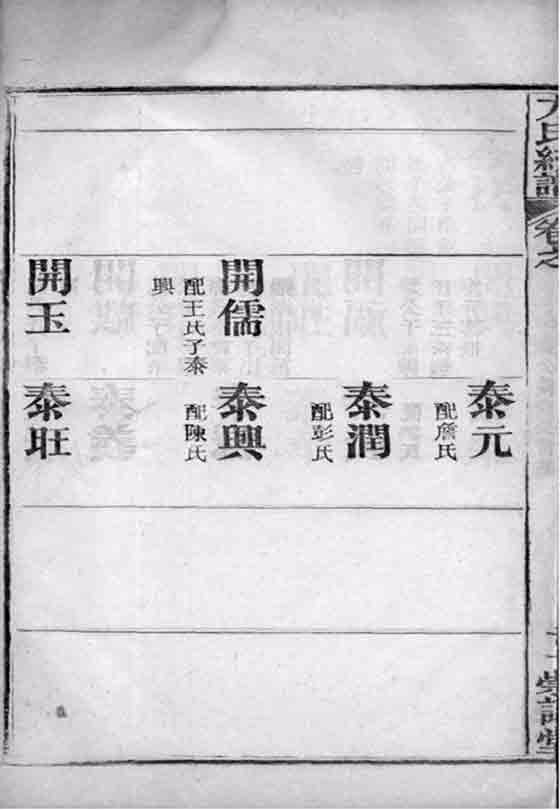 氏經譜
卷之
泰元
配詹氏
泰潤
配彭氏
開儒
配王氏子泰
興
泰興
配陳氏
開玉
泰旺